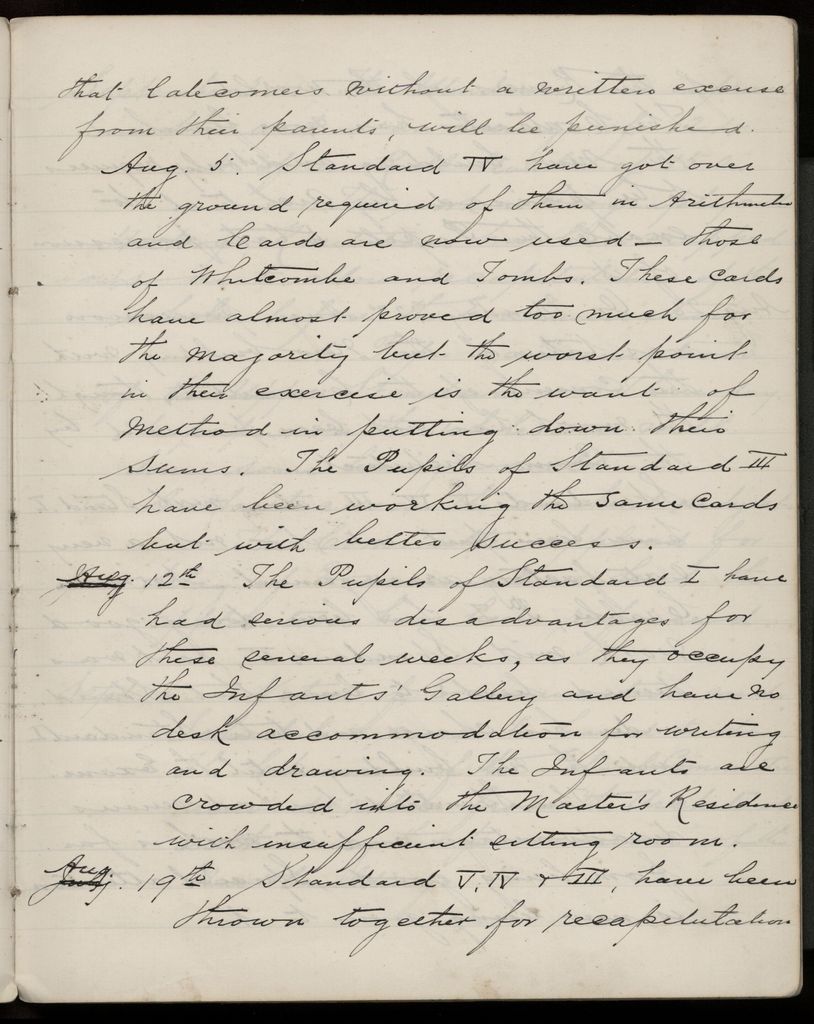 that latecomers without a written excuse
from their parents, will be punished.
Aug. 5. Standard IV have got over
the ground required of them in Arithmetic
and Cards are now used – those
of Whitcombe and Tombs. These cards
have almost proved too much for
the majority but the worst point
in their exercise is the want of
Method in putting down their
sums. The Pupils of Standard III
have been working the same cards
but with better success.
Aug. 12th The Pupils of Standard I have
had serious disadvantages for
these several weeks, as they occupy
the Infants' Gallery and have no
desk accommodation for writing
and drawing. The Infants are
crowded into the Master's Residence
with insufficient sitting room.
Aug. 19th Standard V, IV & III, have been
thrown together for recapitulation